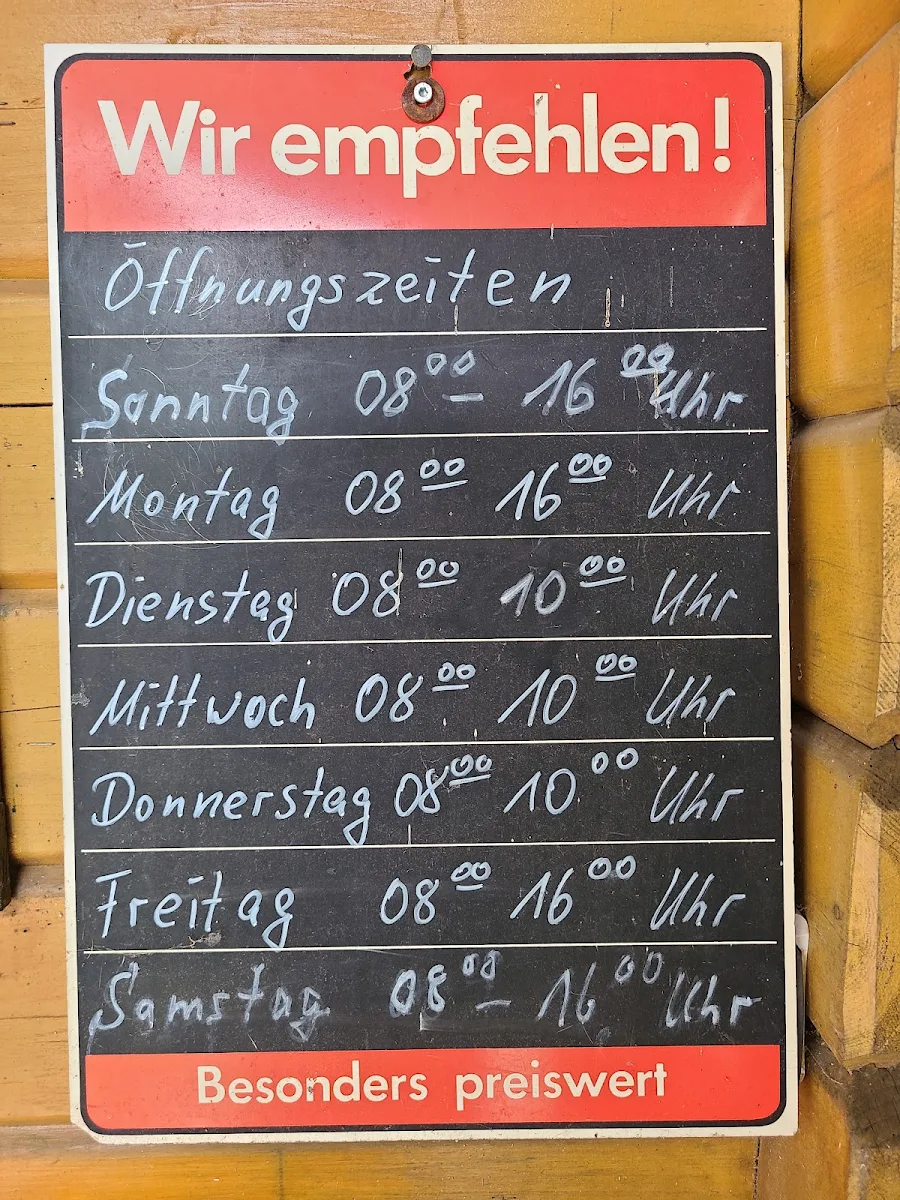 Wir empfehlen!
Öffnungszeiten
Sonntag 08⁰⁰ – 16⁰⁰ Uhr
Montag 08⁰⁰ 16⁰⁰ Uhr
Dienstag 08⁰⁰ 10⁰⁰ Uhr
Mittwoch 08⁰⁰ 10⁰⁰ Uhr
Donnerstag 08⁰⁰ 10⁰⁰ Uhr
Freitag 08⁰⁰ 16⁰⁰ Uhr
Samstag 08⁰⁰ – 16⁰⁰ Uhr
Besonders preiswert